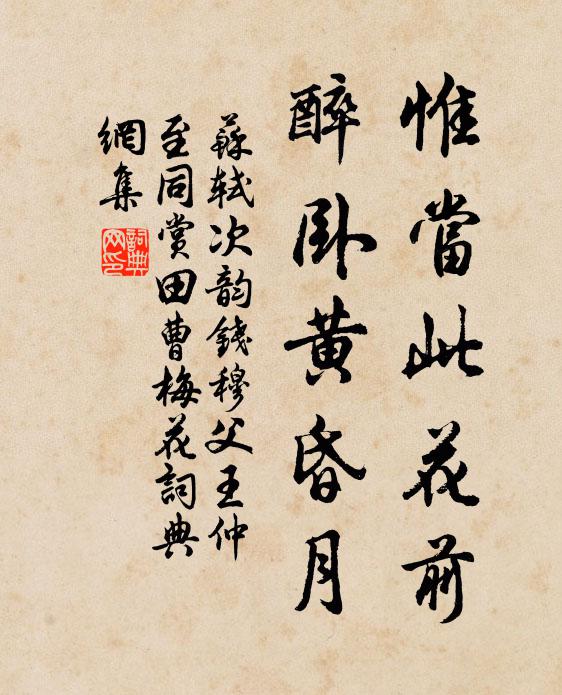 惟當此花前
醉卧黄昏月
蘇軾次韵錢穆父王仲
至同賞田曹梅花詞典
網集
詞典
网印